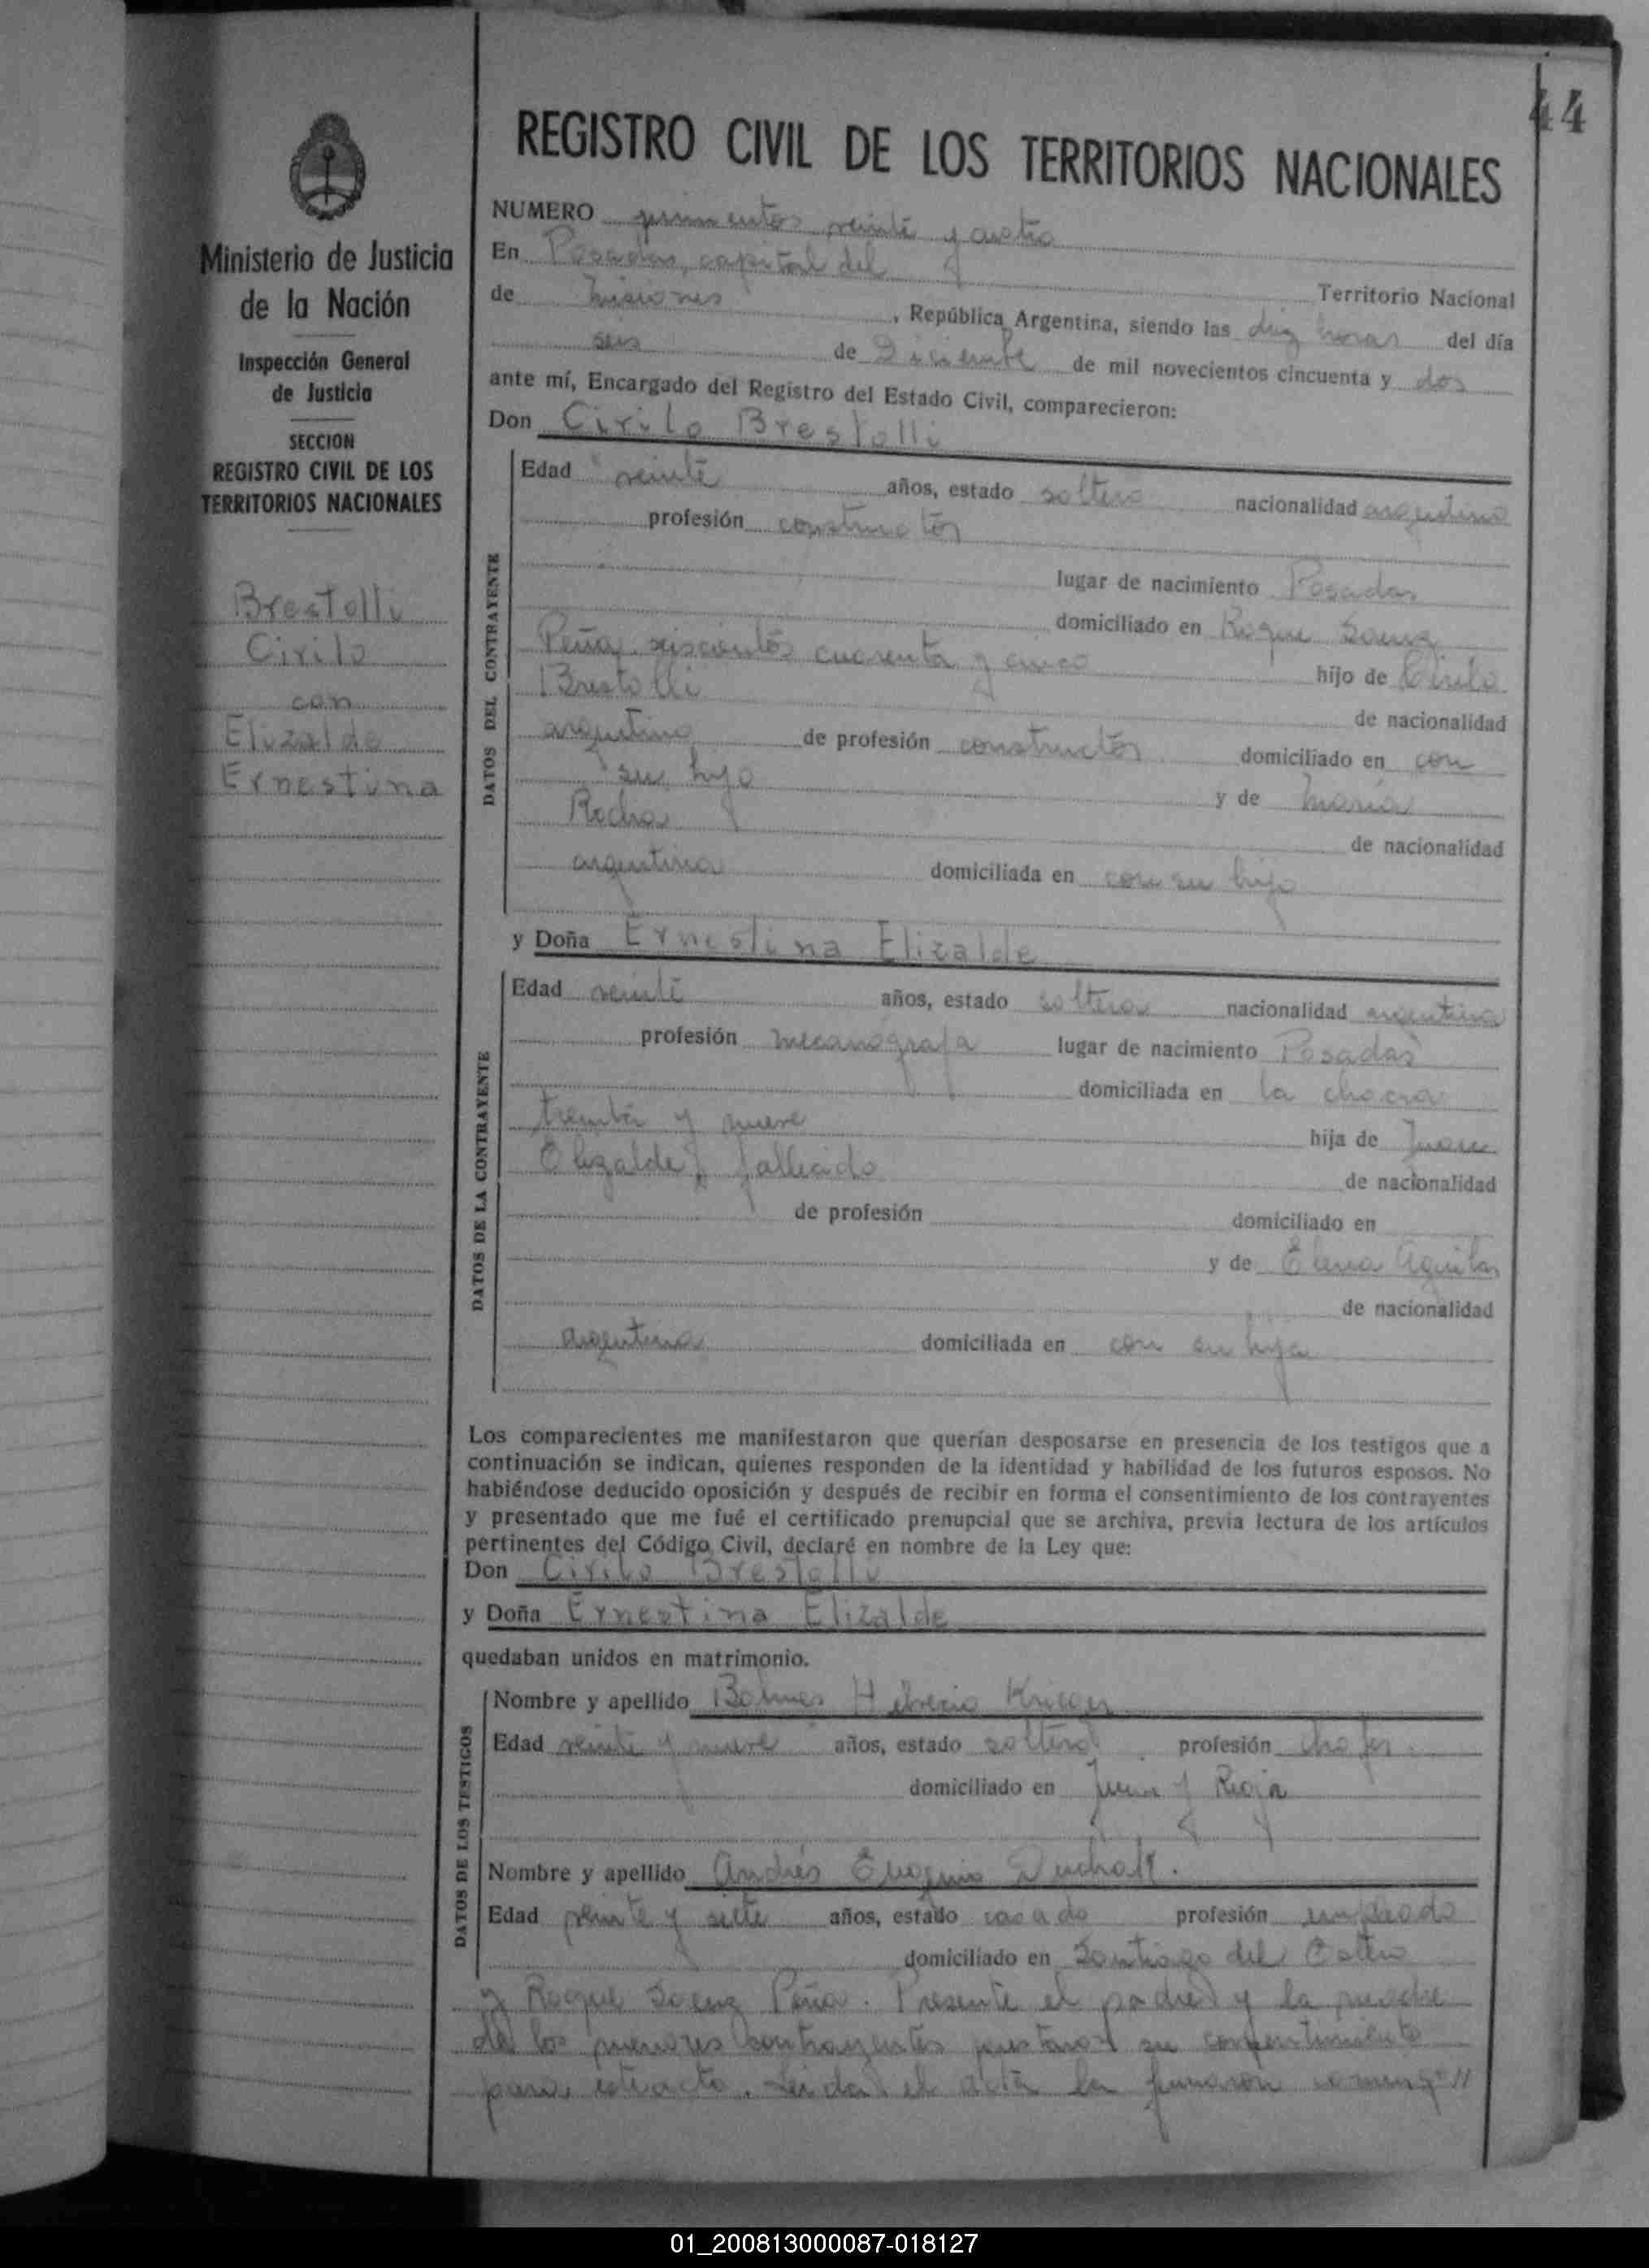 44
REGISTRO CIVIL DE LOS TERRITORIOS NACIONALES
Ministerio de Justicia
de la Nación
Inspección General
de Justicia
SECCION
REGISTRO CIVIL DE LOS
TERRITORIOS NACIONALES
Brestolli
Cirilo
con
Elizalde
Ernestina
NUMERO quinientos veinte y cuatro
En Posadas, capital del
Territorio Nacional
de Misiones, República Argentina, siendo las diez horas del día
seis de Diciembre de mil novecientos cincuenta y dos
ante mí, Encargado del Registro del Estado Civil, comparecieron:
Don Cirilo Brestolli
DATOS DEL CONTRAYENTE
Edad veinte años, estado soltero nacionalidad argentino
profesión constructor
lugar de nacimiento Posadas
domiciliado en Roque Saenz
Peña seiscientos cuarenta y cinco hijo de Cirilo
Brestolli de nacionalidad
argentino de profesión constructor domiciliado en con
su hijo y de María
Rocha de nacionalidad
argentina domiciliada en con su hijo
y Doña Ernestina Elizalde
DATOS DE LA CONTRAYENTE
Edad veinte años, estado soltera nacionalidad argentina
profesión mecanografa lugar de nacimiento Posadas
domiciliada en la chacra
treinta y nueve hija de Juan
Elizalde, fallecido de nacionalidad
de profesión domiciliado en
y de Elena Aguilar
de nacionalidad
argentina domiciliada en con su hija
Los comparecientes me manifestaron que querían desposarse en presencia de los testigos que a
continuación se indican, quienes responden de la identidad y habilidad de los futuros esposos. No
habiéndose deducido oposición y después de recibir en forma el consentimiento de los contrayentes
y presentado que me fué el certificado prenupcial que se archiva, previa lectura de los artículos
pertinentes del Código Civil, declaré en nombre de la Ley que:
Don Cirilo Brestolli
y Doña Ernestina Elizalde
quedaban unidos en matrimonio.
DATOS DE LOS TESTIGOS
Nombre y apellido Krieger
Edad veinte y nueve años, estado soltero profesión chofer
domiciliado en Junin y Rioja
Nombre y apellido Andrés Eugenio
Edad veinte y siete años, estado casado profesión empleado
domiciliado en Santiago del Estero
y Roque Saenz Peña. Presente el padre y la madre
de los menores contrayentes prestaron su consentimiento
para este acto. Leida el acta la firmaron
01_200813000087-018127